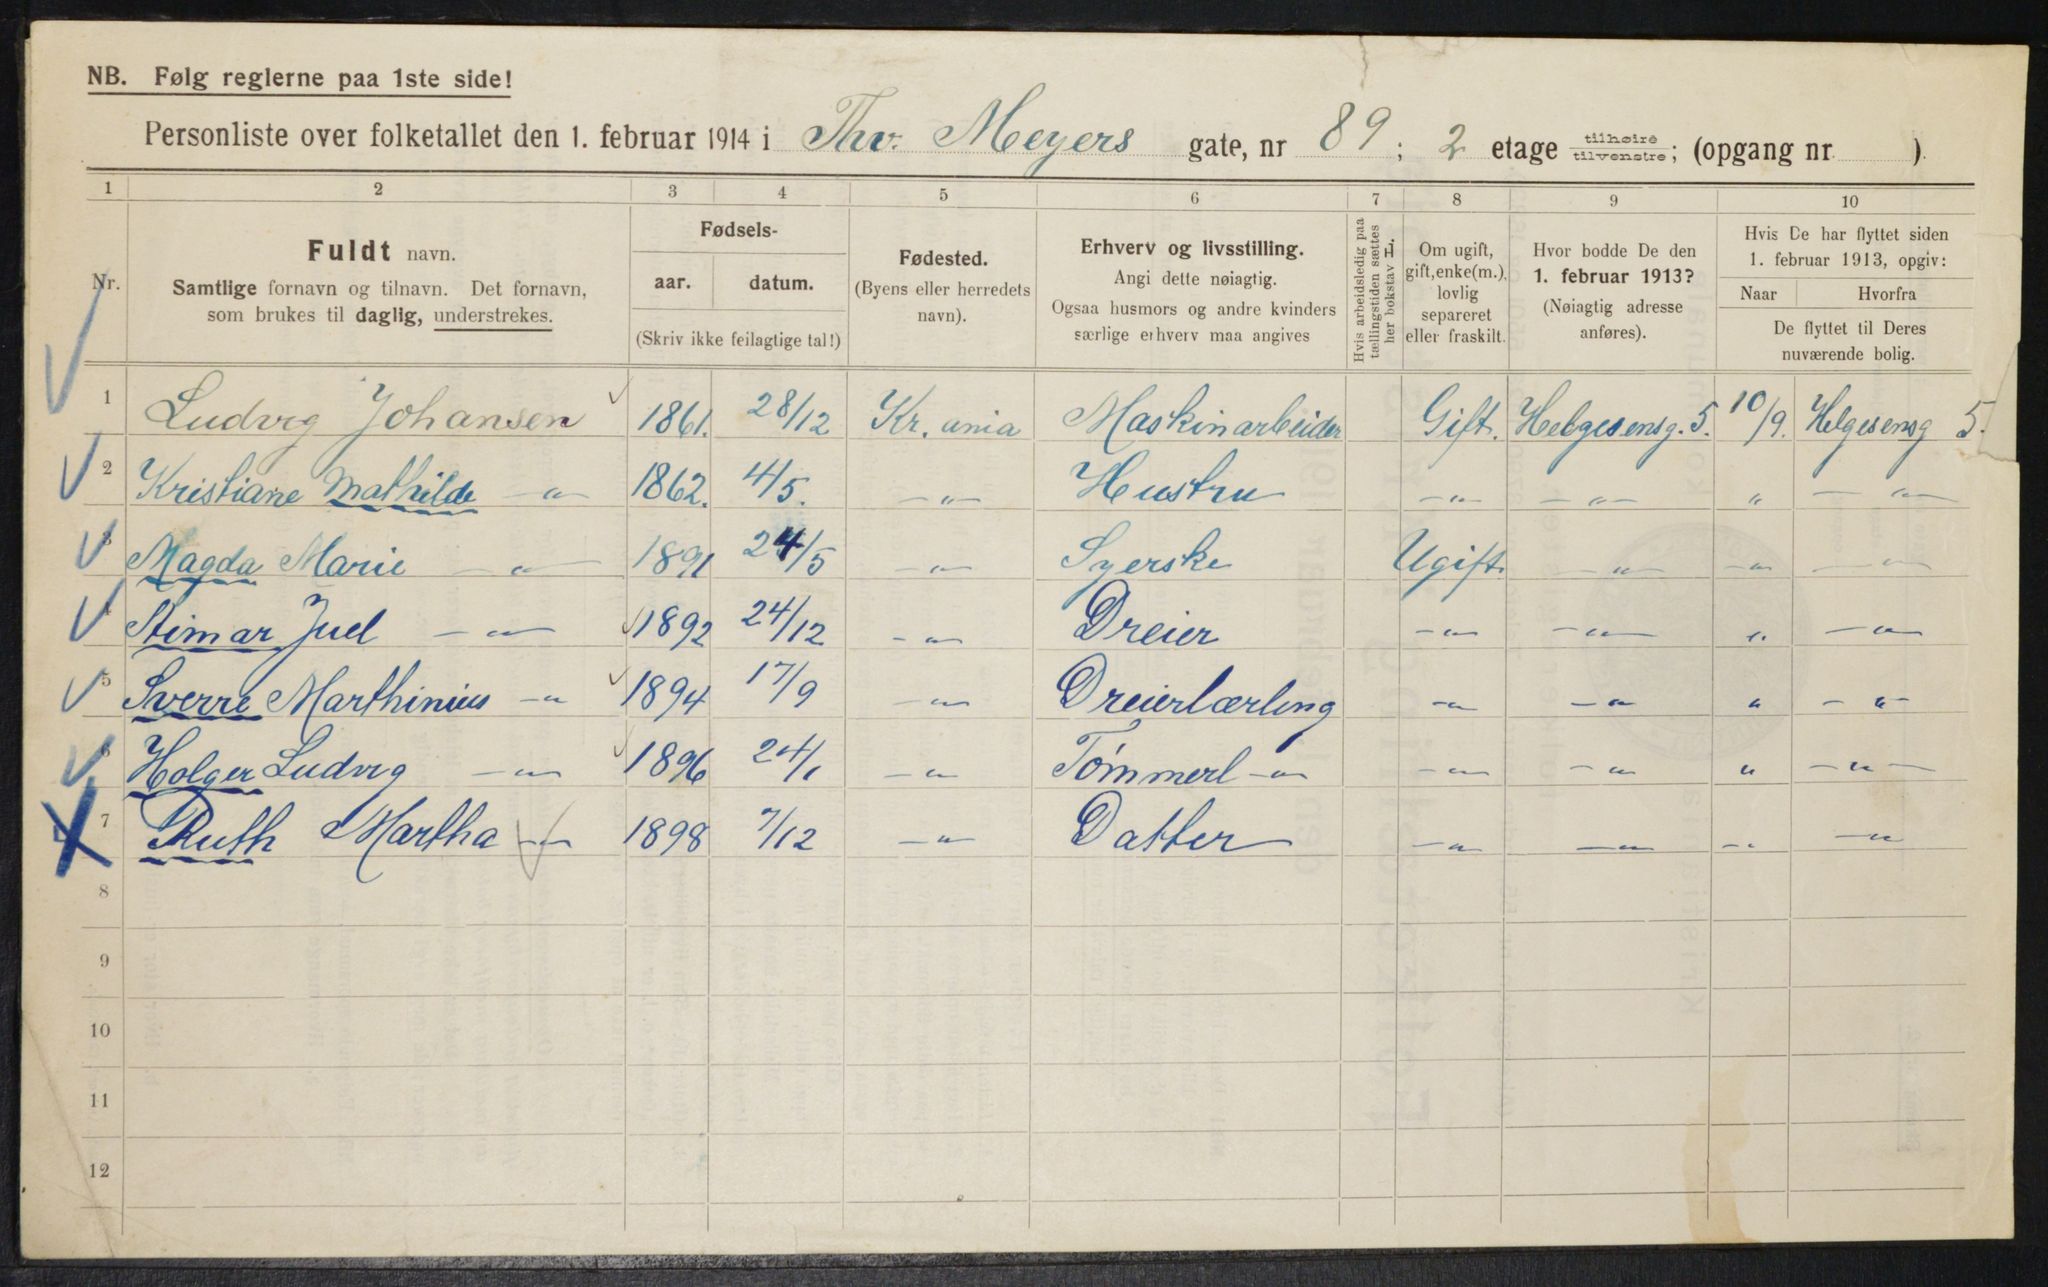 NB. Følg reglerne paa 1ste side!
Personliste over folketallet den 1. februar 1914 i Thv. Meyers gate, nr 89; 2 etage tilhøire tilvenstre; (opgang nr )
1 2 3 4 5 6 7 8 9 10
Nr.
Fuldt navn.
Samtlige fornavn og tilnavn. Det fornavn,
som brukes til daglig, understrekes.
Fødsels-
aar. datum.
(Skriv ikke feilagtige tal!)
Fødested.
(Byens eller herredets
navn).
Erhverv og livsstilling.
Angi dette nøiagtig.
Ogsaa husmors og andre kvinders
særlige erhverv maa angives
Hvis arbeidsledig paa
tællingstiden sættes
her bokstav L.
Om ugift,
gift, enke(m.),
lovlig
separeret
eller fraskilt.
Hvor bodde De den
1. februar 1913?
(Nøiagtig adresse
anføres).
Hvis De har flyttet siden
1. februar 1913, opgiv:
Naar Hvorfra
De flyttet til Deres
nuværende bolig.
1 Ludvig Johansen 1861. 28/12 Kr.ania Maskinarbeider Gift. Helgesensg. 5. 10/9. Helgesensg 5.
2 Kristiane Mathilde —"— 1862. 4/5. —"— Hustru —"— —"— " —"—
3 Magda Marie —"— 1891 24/5 —"— Syerske Ugift. —"— —"— —"—
4 Juel —"— 1892 24/12 —"— Dreier —"— —"— " —"—
5 Sverre Marthinius —"— 1894 17/9 —"— Dreierlærling —"— —"— " —"—
6 Holger Ludvig —"— 1896 24/1 —"— Tømmerl —"— —"— —"— " —"—
7 Ruth Martha —"— 1898 7/12 —"— Datter —"— —"— —"— —"—
8
9
10
11
12